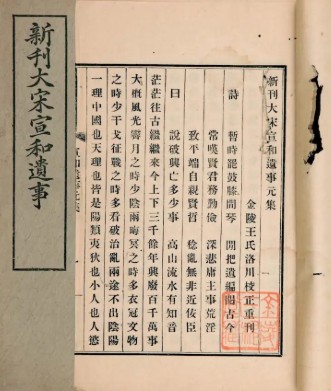 新刊大宋宣和遺事
新刊大宋宣和遺事元集
金陵王氏洛川校正重刊
詩
暫時罷鼓膝間琴　閒把遺編閱古今
常嘆賢君務勤儉　深悲庸主事荒淫
致平端自親賢哲　稔亂無非近佞臣
說破興亡多少事　高山流水有知音
曰
茫茫往古繼繼來今上下三千餘年興廢百千萬事
大概風光霽月之時少陰雨晦冥之時多衣冠文物
之時少干戈征戰之時多看破治亂兩途不出陰陽
一理中國也天理也皆是陽類夷狄也小人也人慾